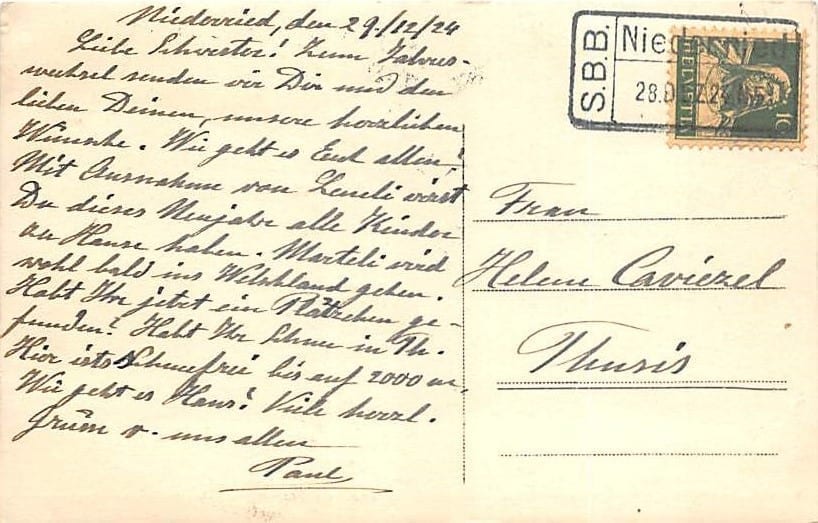 Niederried, den 29./12/24
Liebe Schwester! Zum Jahres-
wechsel senden wir Dir und den
lieben Deinen, unsere herzlichen
Wünsche. Wie geht es Euch allen?
Mit Ausnahme von Leneli wirst
Du dieses Neujahr alle Kinder
zu Hause haben. Marteli wird
wohl bald ins Welschland gehen.
Habt Ihr jetzt ein Plätzchen ge-
funden? Habt Ihr Schnee in Th.
Hier ists Schneefrei bis auf 2000 m.
Wie geht es Hans? Viele herzl.
Grüsse v. uns allen
Paul
S.B.B.
Niederried
28.
HELVETIA
10
Frau
Helene Caviezel
Thusis